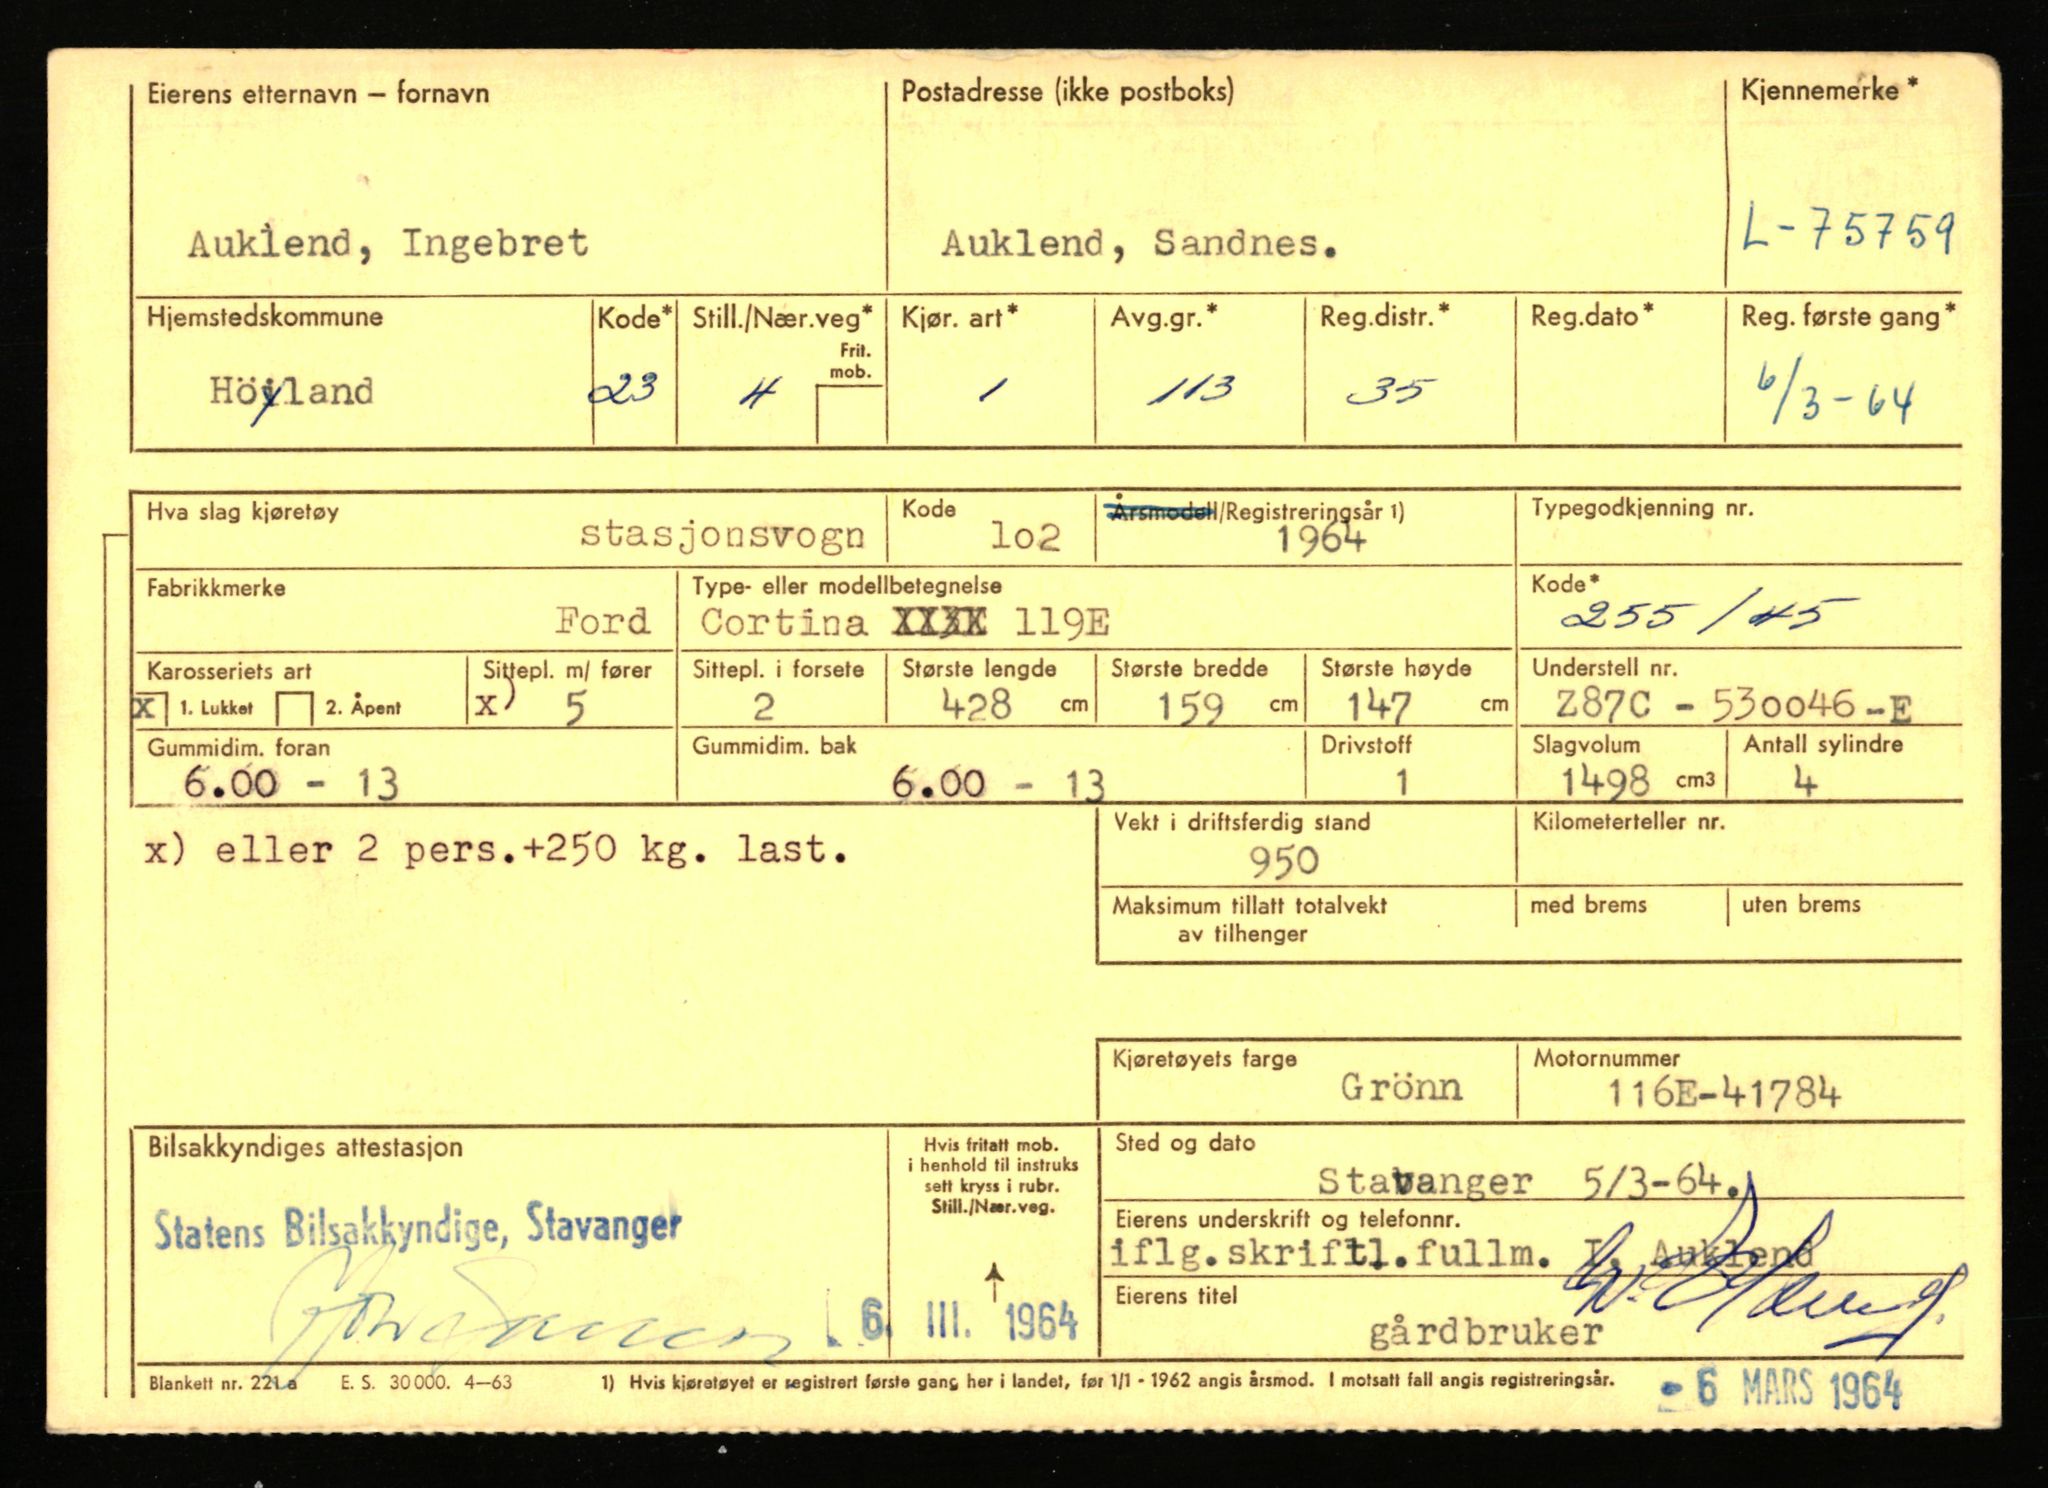 Eierens etternavn – fornavn Postadresse (ikke postboks) Kjennemerke*
Auklend, Ingebret Auklend, Sandnes. L-75759
Hjemstedskommune Kode* Still./Nær.veg* Kjør. art* Avg.gr.* Reg.distr.* Reg.dato* Reg. første gang*
Frit.
mob.
Höyland 23 4 1 113 35 6/3-64
Hva slag kjøretøy Kode Årsmodell/Registreringsår 1) Typegodkjenning nr.
stasjonsvogn lo2 1964
Fabrikkmerke Type- eller modellbetegnelse Kode*
Ford Cortina XXXX 119E 255/45
Karosseriets art Sittepl. m/ fører Sittepl. i forsete Største lengde Største bredde Største høyde Understell nr.
X 1. Lukket 2. Åpent x) 5 2 428 cm 159 cm 147 cm Z87C - 530046-E
Gummidim. foran Gummidim. bak Drivstoff Slagvolum Antall sylindre
6.00 - 13 6.00 - 13 1 1498 cm3 4
x) eller 2 pers.+250 kg. last.
Vekt i driftsferdig stand Kilometerteller nr.
950
Maksimum tillatt totalvekt med brems uten brems
av tilhenger
Kjøretøyets farge Motornummer
Grönn 116E-41784
Bilsakkyndiges attestasjon Hvis fritatt mob.
i henhold til instruks
sett kryss i rubr.
Still./Nær.veg.
Sted og dato
Stavanger 5/3-64.
Statens Bilsakkyndige, Stavanger
Eierens underskrift og telefonnr.
iflg.skriftl.fullm. I. Auklend
Eierens titel
6. III. 1964
gårdbruker
Blankett nr. 221 a E. S. 30 000. 4–63 1) Hvis kjøretøyet er registrert første gang her i landet, før 1/1 - 1962 angis årsmod. I motsatt fall angis registreringsår.
- 6 MARS 1964